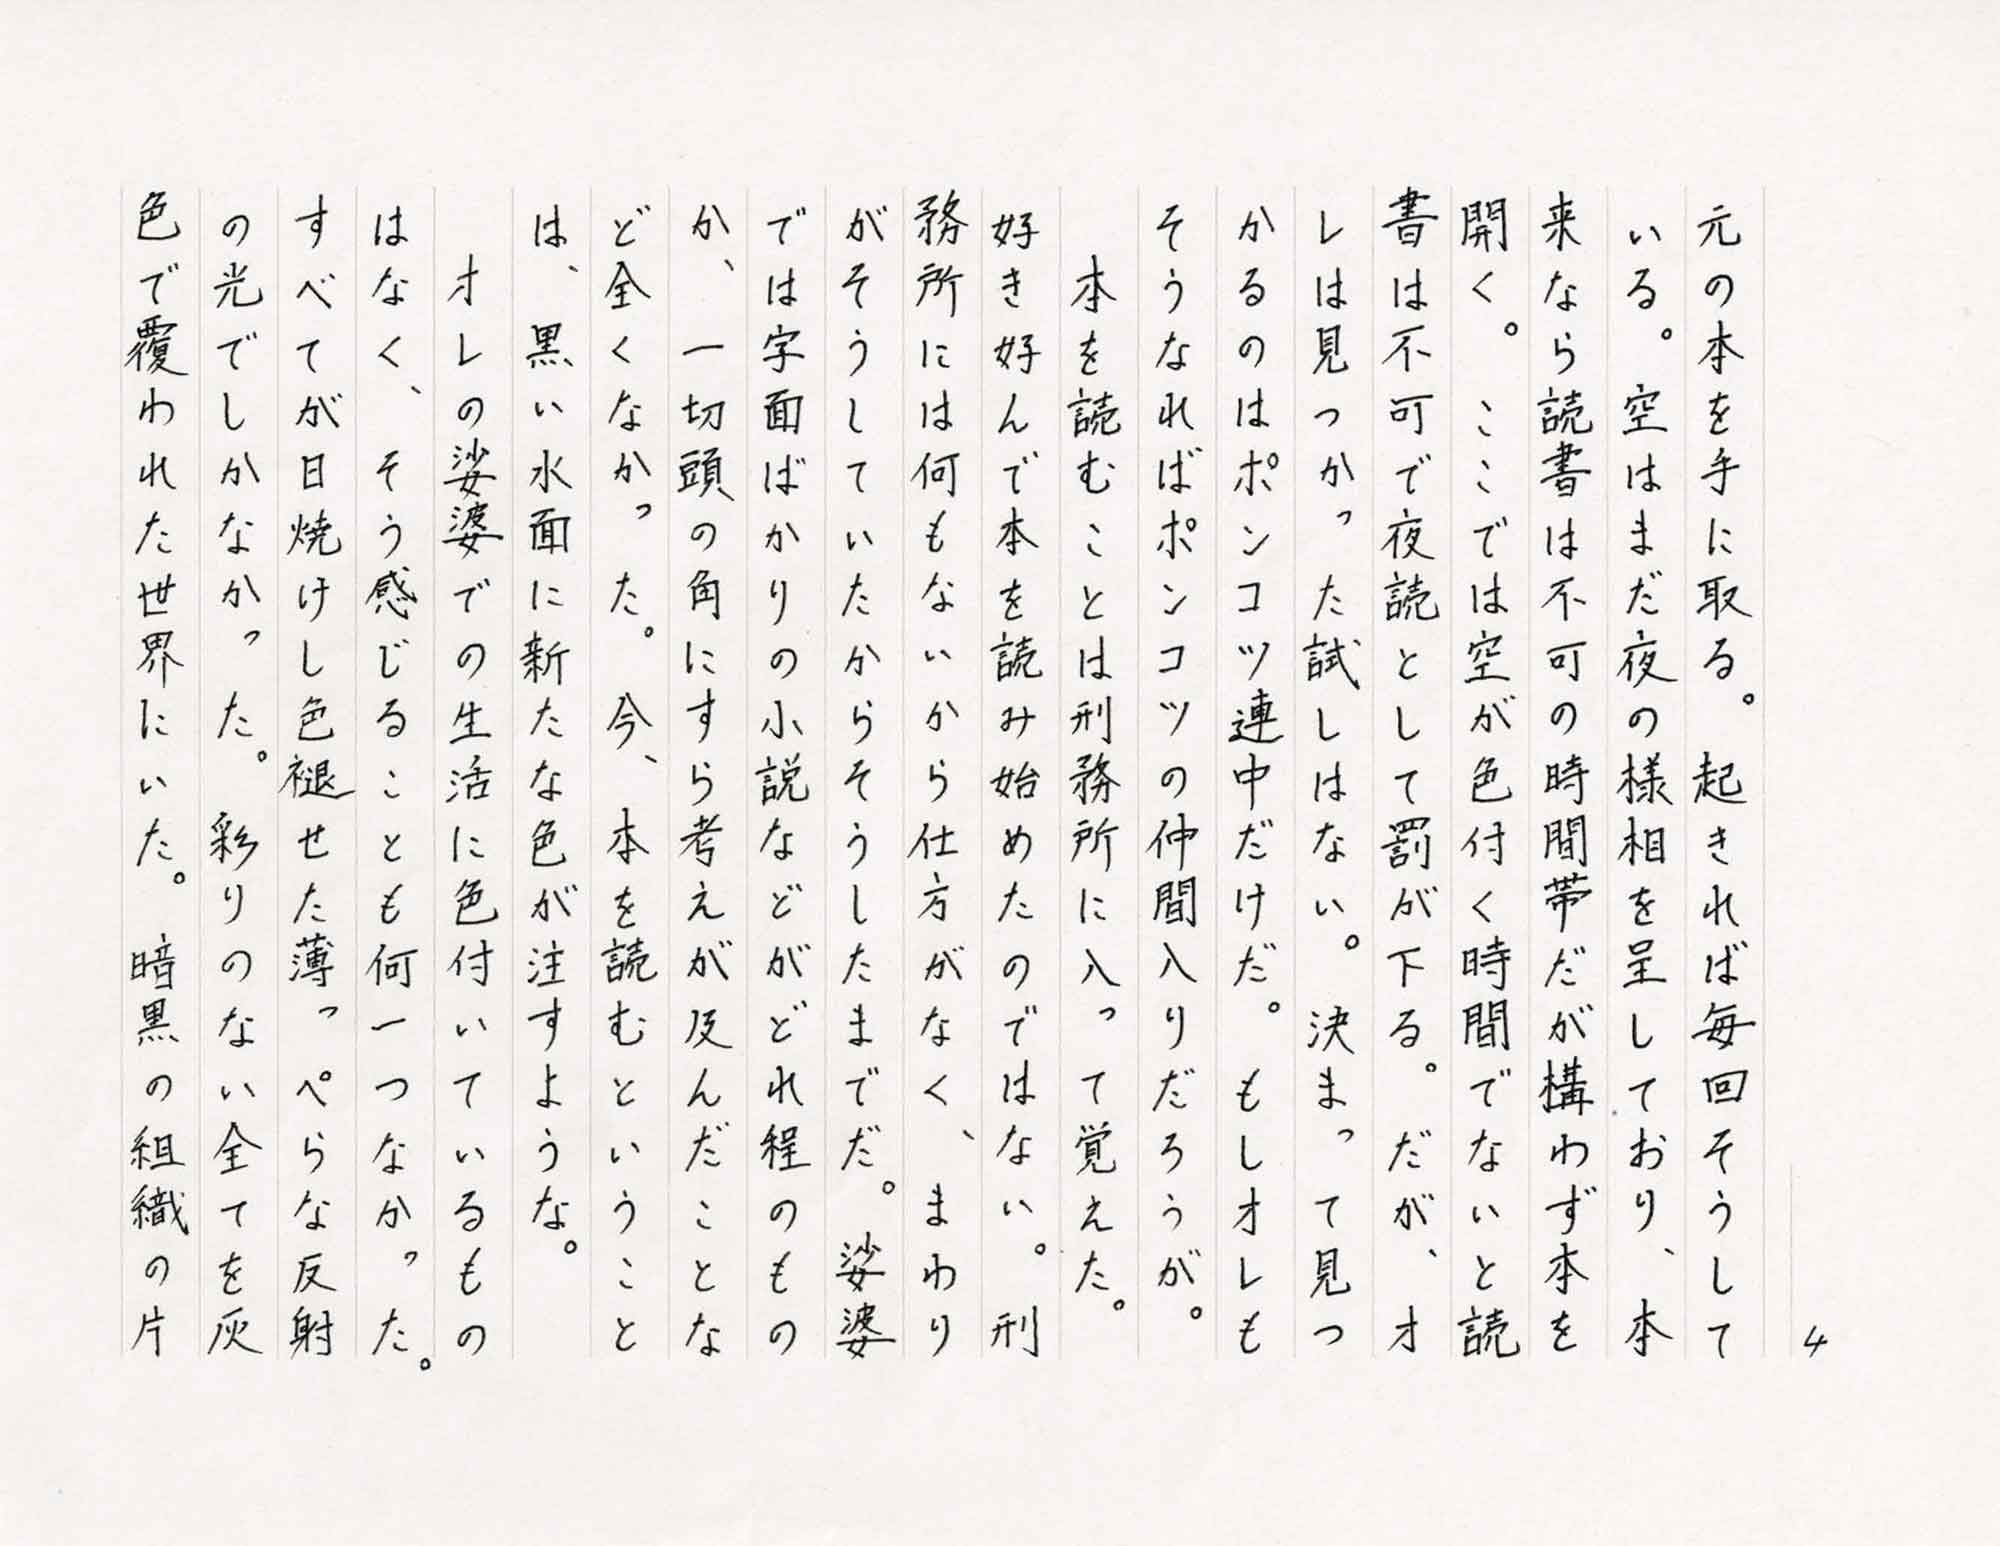 4
元の本を手に取る。起きれば毎回そうして
いる。空はまだ夜の様相を呈しており、本
来なら読書は不可の時間帯だが構わず本を
開く。ここでは空が色付く時間でないと読
書は不可で夜読として罰が下る。だが、オ
レは見つかった試しはない。決まって見つ
かるのはポンコツ連中だけだ。もしオレも
そうなればポンコツの仲間入りだろうが。
本を読むことは刑務所に入って覚えた。
好き好んで本を読み始めたのではない。刑
務所には何もないから仕方がなく、まわり
がそうしていたからそうしたまでだ。娑婆
では字面ばかりの小説などがどれ程のもの
か、一切頭の角にすら考えが及んだことな
ど全くなかった。今、本を読むということ
は、黒い水面に新たな色が注すような。
オレの娑婆での生活に色付いているもの
はなく、そう感じることも何一つなかった。
すべてが日焼けし色褪せた薄っぺらな反射
の光でしかなかった。彩りのない全てを灰
色で覆われた世界にいた。暗黒の組織の片